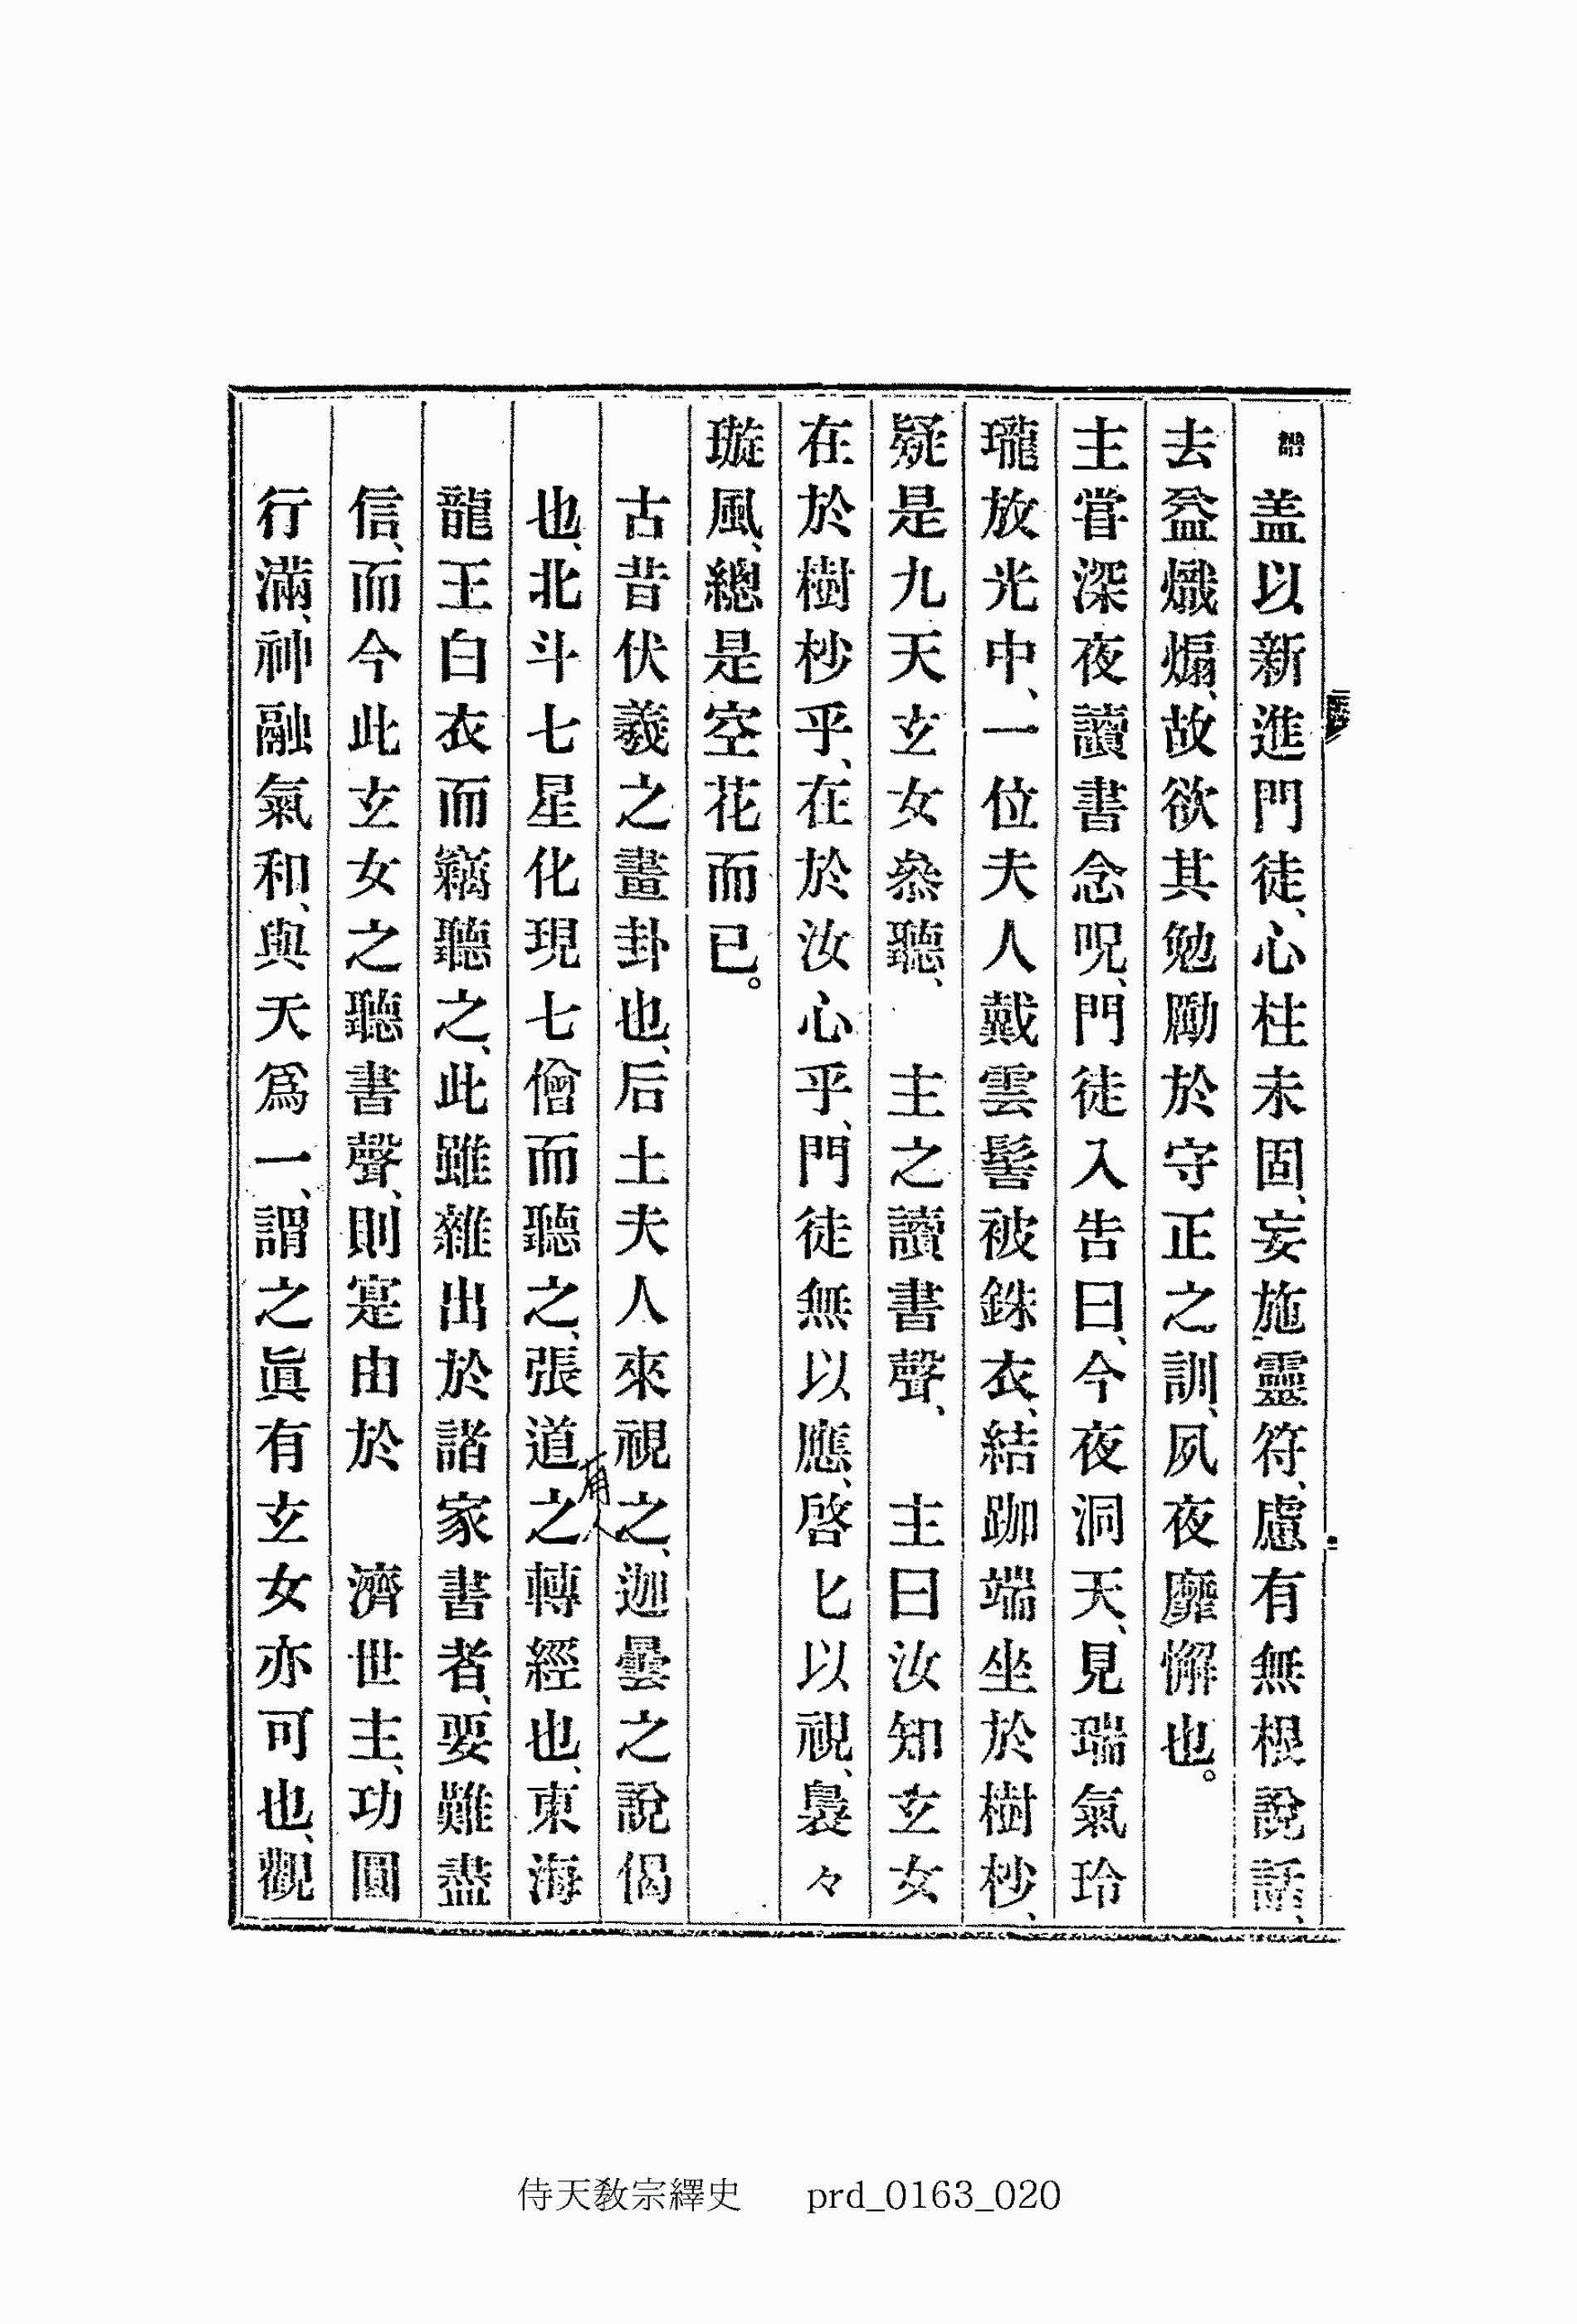 盖以新進門徒、心柱未固、妄施靈符、慮有無根說話、
去益熾煽、故欲其勉勵於守正之訓、夙夜靡懈也。
主甞深夜讀書念呪、門徒入告曰、今夜洞天、見瑞氣玲
瓏放光中、一位夫人戴雲髻被銖衣、結跏端坐於樹杪、
疑是九天玄女叅聽、　主之讀書聲、　主曰汝知玄女
在於樹杪乎、在於汝心乎、門徒無以應、啓匕以視、裊々
璇風、總是空花而已。
古昔伏羲之畫卦也、后土夫人來視之、迦曇之說偈
也、北斗七星化現七僧而聽之、張道之轉經也、東海
有人
龍王白衣而竊聽之、此雖雜出於諸家書者、要難盡
信、而今此玄女之聽書聲、則寔由於　濟世主、功圓
行滿、神融氣和、與天爲一、謂之眞有玄女亦可也、觀
侍天敎宗繹史 prd_0163_020